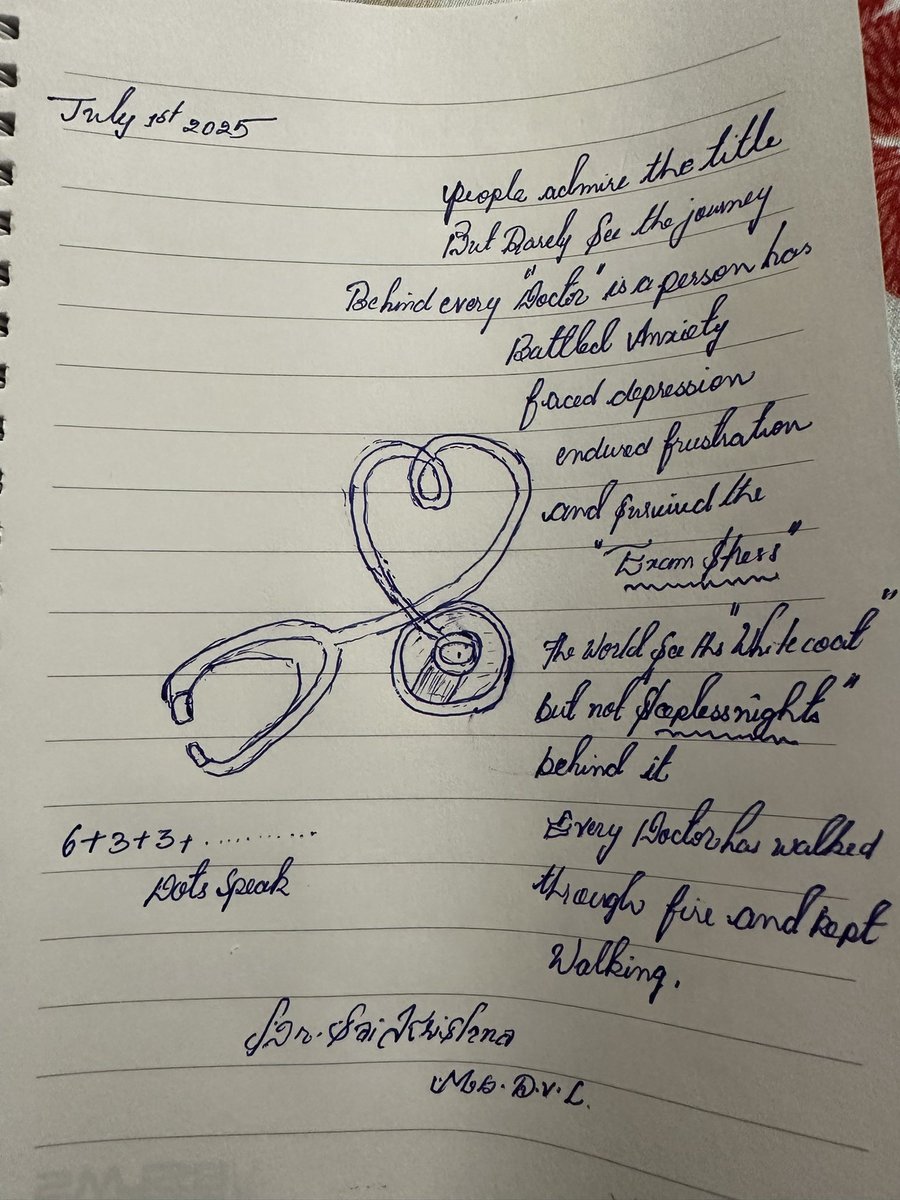 July 1st 2025
people admire the title
But Rarely See the journey
Behind every "Doctor" is a person has
Battled Anxiety
faced depression
endured frustration
and survived the
"Exam Stress"
The World See the "White coat"
but not Sleepless nights"
behind it
Every Doctor has walked
through fire and kept
Walking.
6+3+3+...........
Dots Speak
Dr. Sai Krishna
D.V.L.